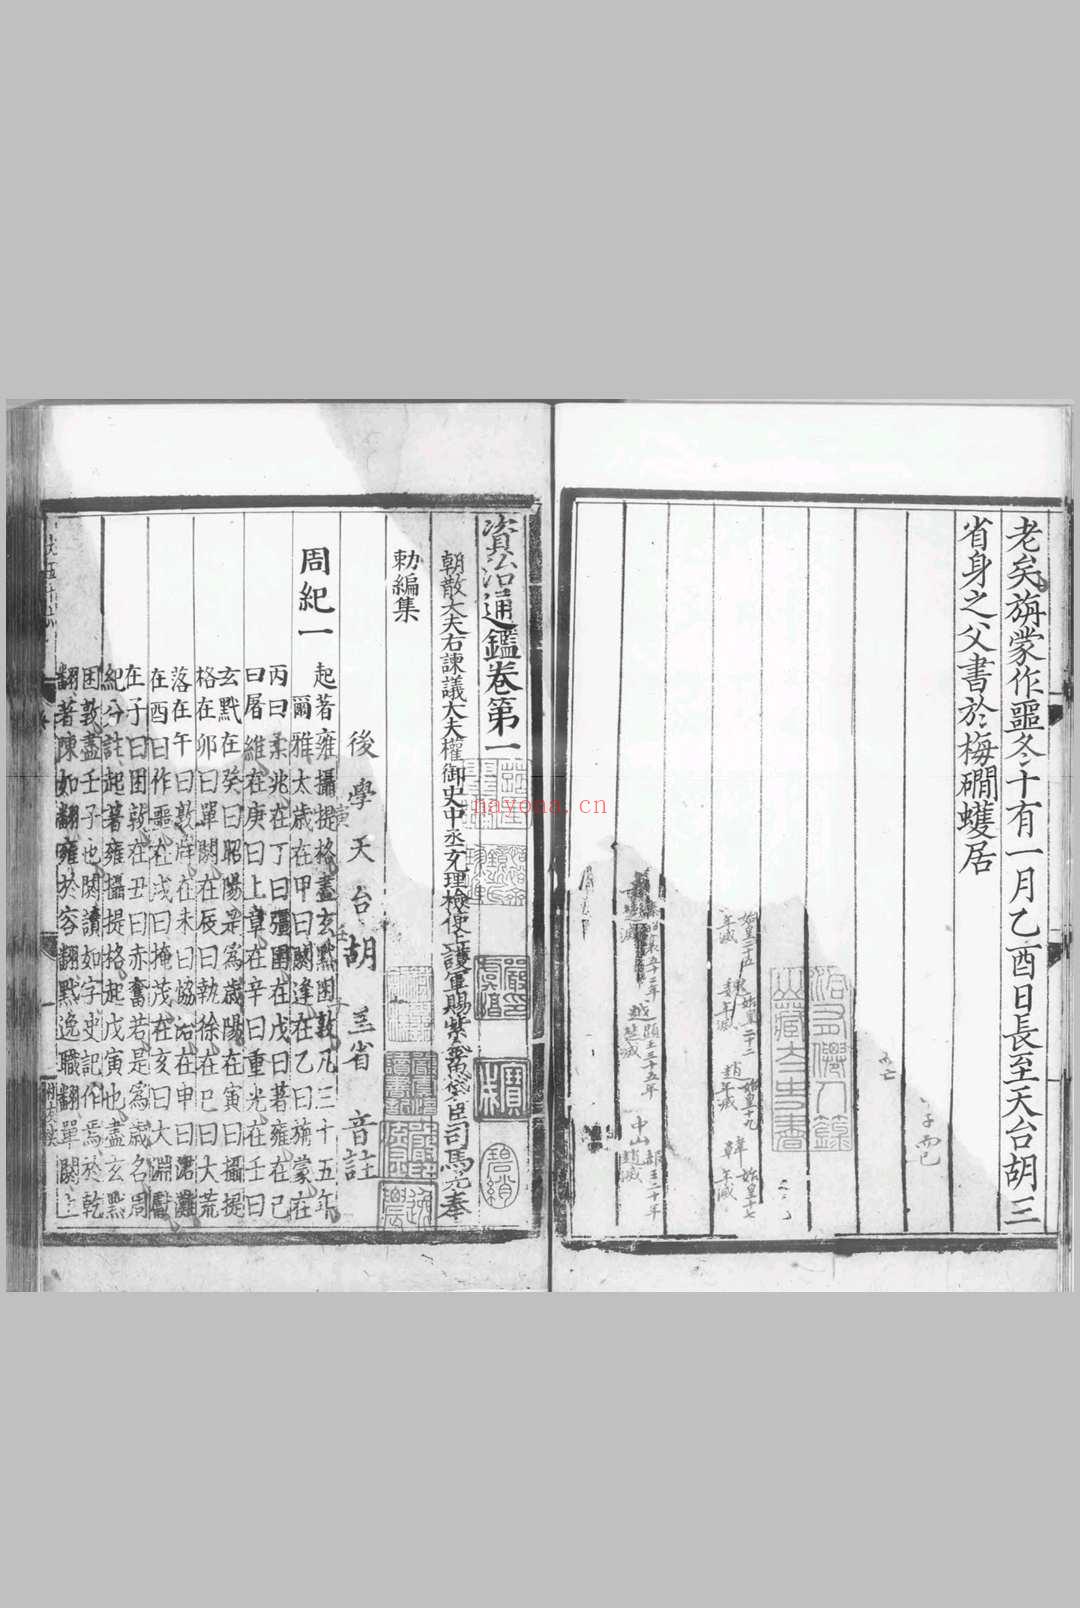 老矣旃蒙作噩冬十有一月乙酉日長至天台胡三
省身之父書於梅磵蠖居
資治通鑑卷第一
朝散大夫右諫議大夫權御史中丞充理檢使上護軍賜紫金魚袋臣司馬光奉
勑編集
後學天台胡三省音註
周紀一
起著雍攝提格盡玄黓困敦凡三十五年
爾雅太歲在甲曰閼逢在乙曰旃蒙在
丙曰柔兆在丁曰彊圉在戊曰著雍在己
曰屠維在庚曰上章在辛曰重光在壬曰
玄黓在癸曰昭陽是為歲陽在寅曰攝提
格在卯曰單閼在辰曰執徐在巳曰大荒
落在午曰敦牂在未曰協洽在申曰涒灘
在酉曰作噩在戌曰掩茂在亥曰大淵獻
在子曰困敦在丑曰赤奮若是為歲名周
紀分註起著雍攝提格起戊寅也盡玄黓
困敦盡壬子也閼讀如字史記作焉於乾
翻著陳如翻雍於容翻黓逸職翻單閼上
nayona.cn